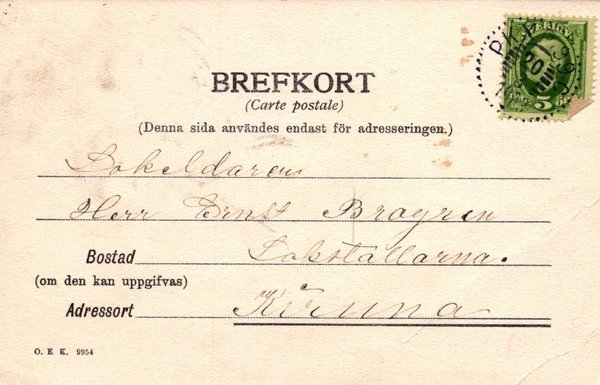 SVERIGE
5
BREFKORT
(Carte postale)
(Denna sida användes endast för adresseringen.)
Lokeldaren
Herr Ernst Brogren
Bostad Lokstallarna.
(om den kan uppgifvas)
Adressort Kiruna
O. E. K. 9954